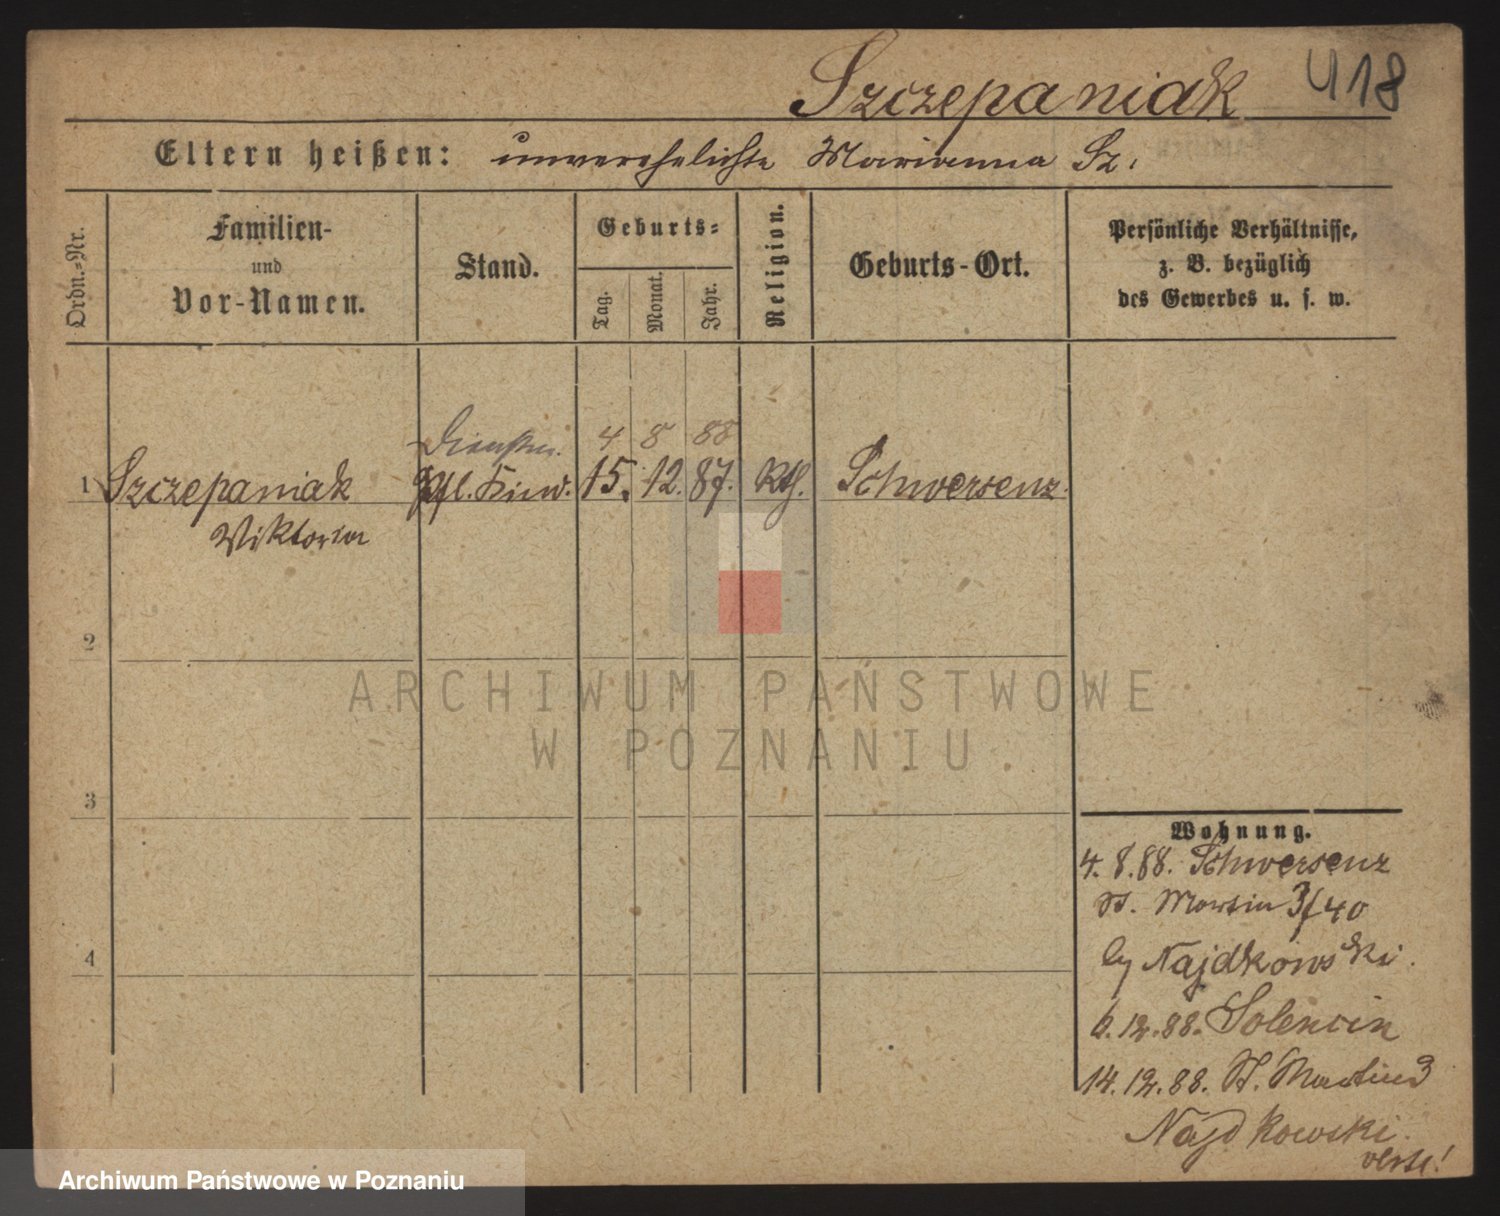 Szczepaniak 418
Eltern heißen: unverehelichte Marianna Sz.
Ordn.-Nr.
Familien-
und
Vor-Namen.
Stand.
Geburts-
Tag.
Monat.
Jahr.
Religion.
Geburts-Ort.
Persönliche Verhältnisse,
z. B. bezüglich
des Gewerbes u. s. w.
4 8 88
1 Szczepaniak 15. 12. 87. Kth. Schwersenz.
Viktoria
2
3
4
ARCHIWUM PAŃSTWOWE
W POZNANIU
Wohnung.
4. 8. 88. Schwersenz
St. Martin 3/40
Najdkowski.
6. 12. 88. Solencin
14. 12. 88. St. Martin 3
Najdkowski.
Archiwum Państwowe w Poznaniu